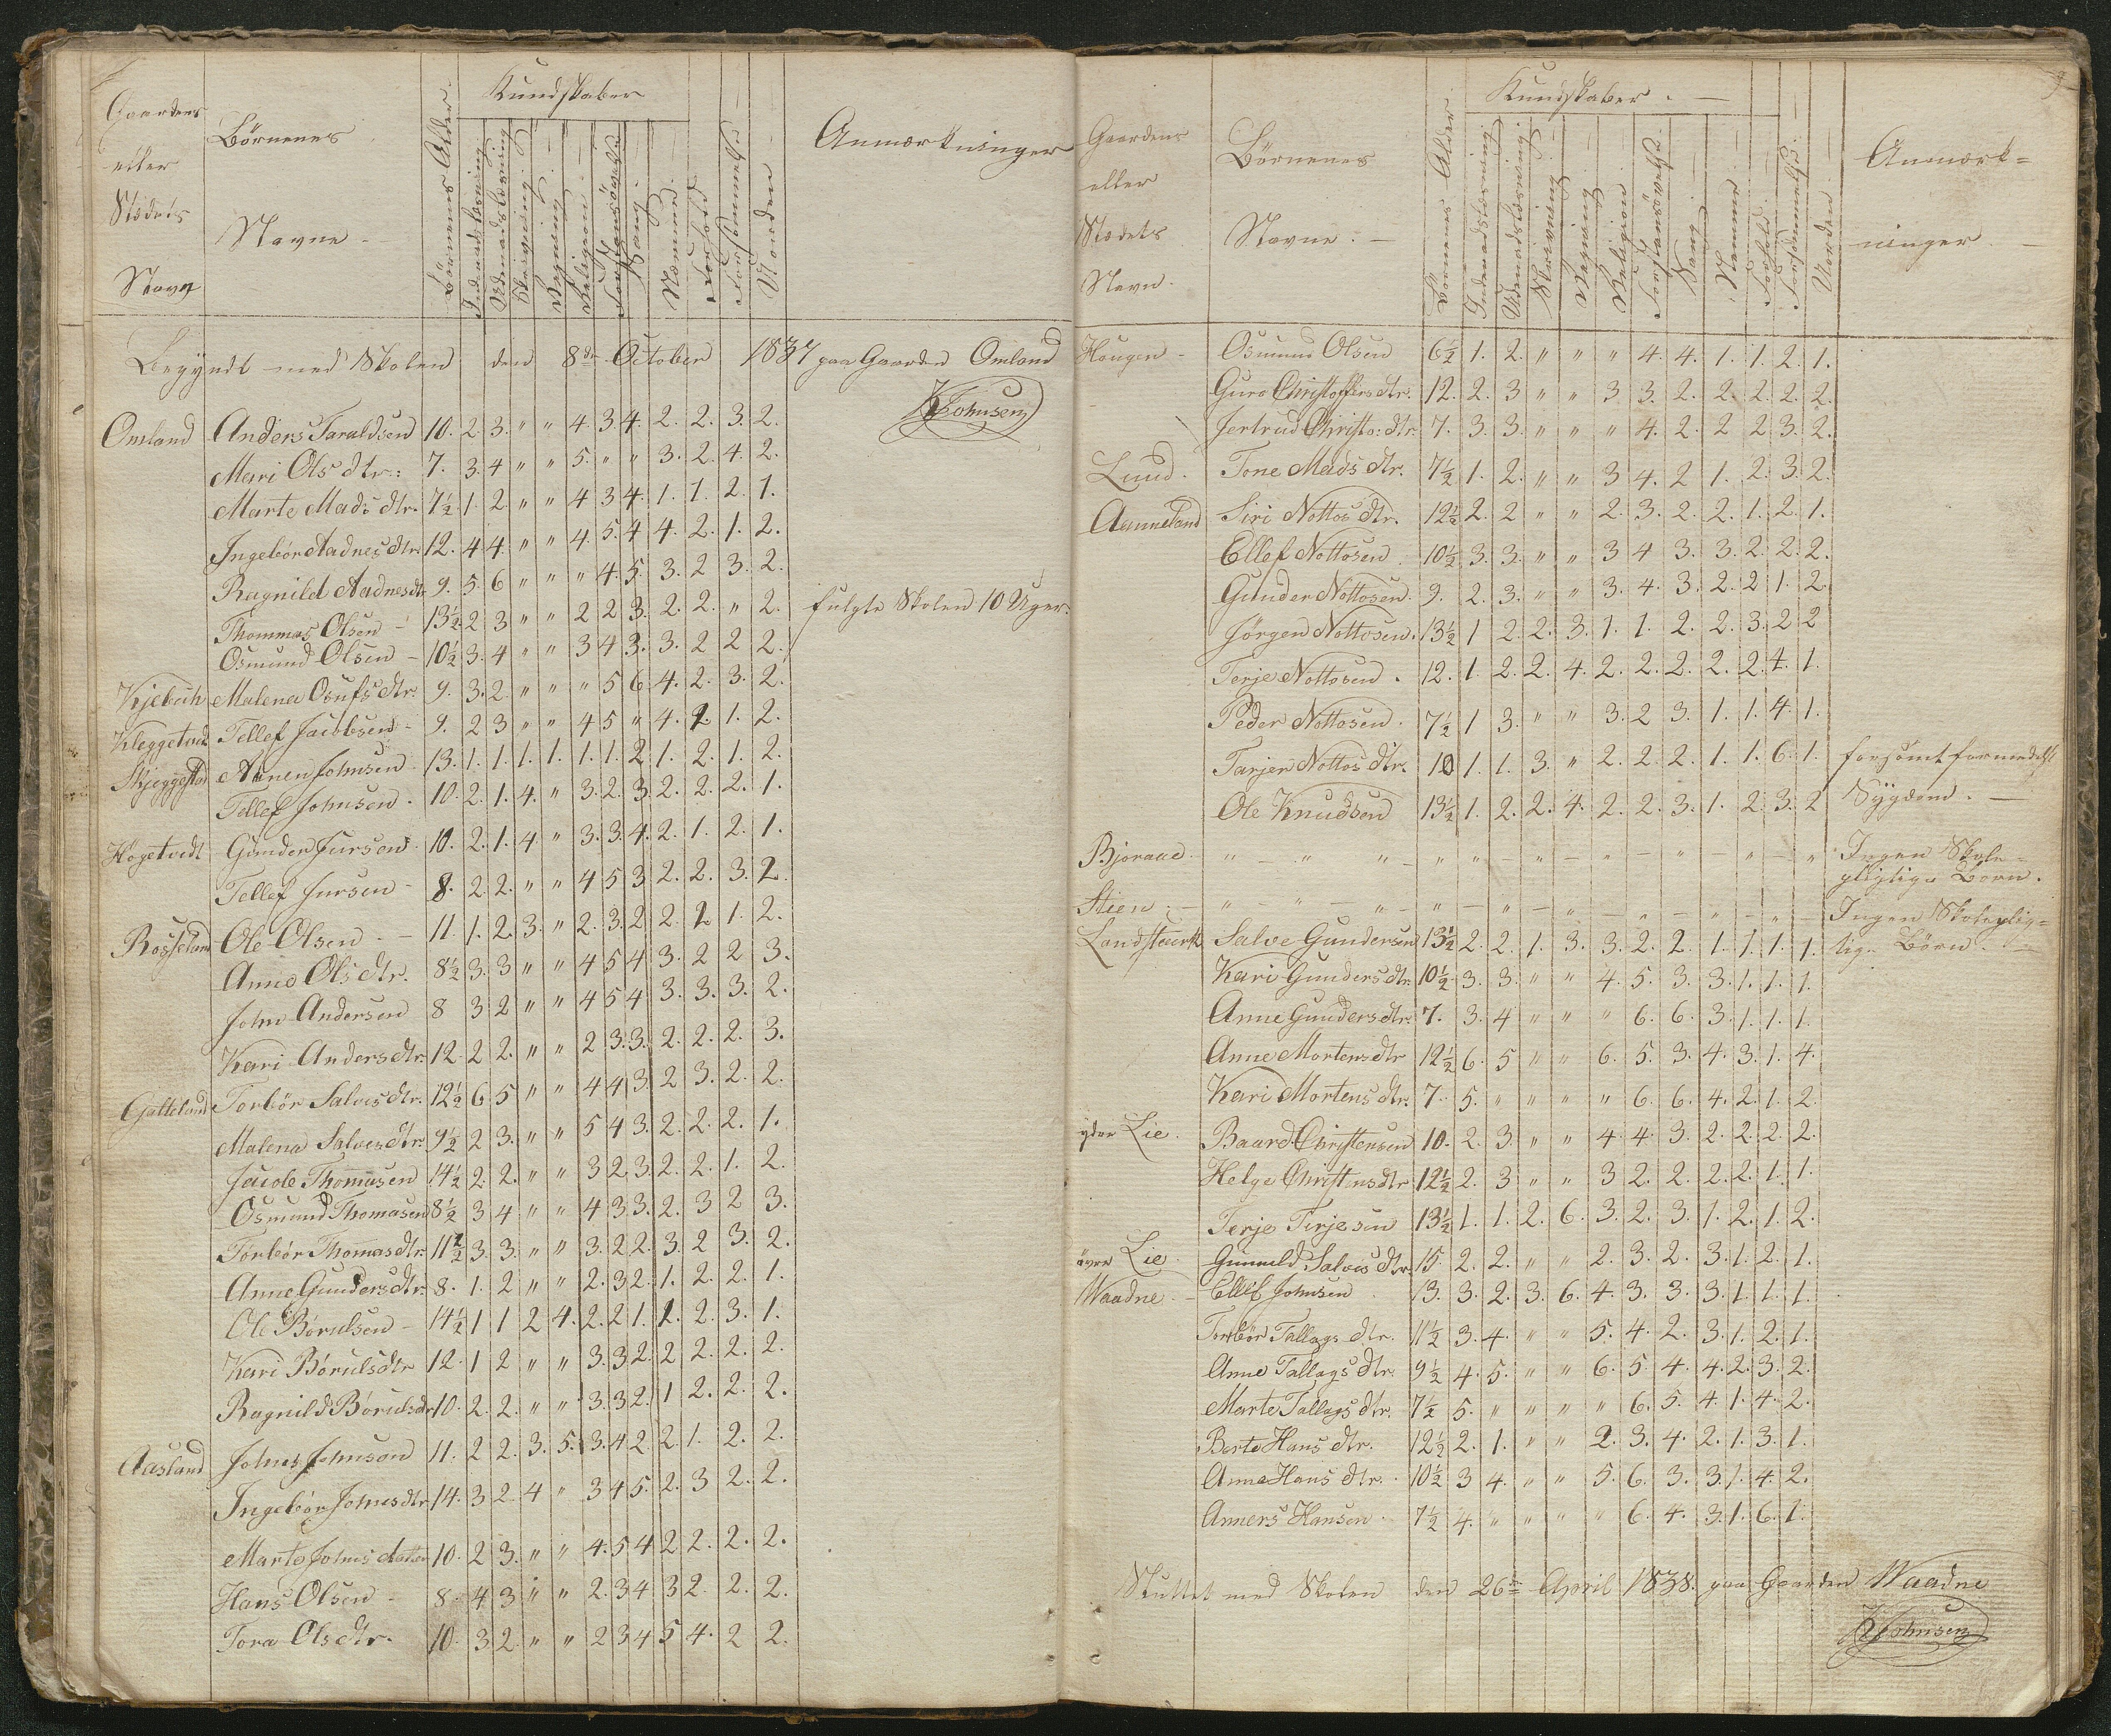 Kundskaber
Gaardens
eller
Stædets
Navn
Börnenes
Navne
Börnenes Alder
Indenadslæsning
Udenadslæsning
Skrivning
Regning
Religion
Forstandsövelse
Sang
Nemme
Forhold
Forsömmelse
Orden
Anmærkninger
Begyndt med Skolen den 8de October 1837 paa Gaarden Omland
KJohnsen
Omland Anders Taraldsen 10. 2 3. " " 4. 3 4. 2. 2. 3. 2.
Mari Ols dtr: 7. 3. 4 " " 5. " " 3. 2. 4. 2.
Marte Mads dtr. 7½ 1. 2. " " 4 3 4. 1. 1. 2. 1.
Ingebör Aadnes dtr. 12. 4 4. " " 4. 5. 4 4. 2. 1. 2.
Ragnild Aadnesdtr 9. 5. 6 " " " 4. 5. 3. 2 3. 2.
Thommas Olsen - 13½ 2 3 " " 2 2 3. 2. 2. " 2. fulgte Skolen 10 Uger.
Osmund Olsen - 10½ 3. 4 " " 3 4 3. 3. 2 2 2.
Kjebuh Malena Osufs dtr. 9. 3. 2. " " " 5 6. 4. 2. 3. 2.
Kleggetved Tellef Jacobsen - 9. 2 3 " " 4 5 " 4. 2. 1. 2.
Skjeggestad Annen Johnsen 13. 1. 1. 1. 1. 1. 1. 2 1. 2. 1. 2.
Tellef Johnsen. 10. 2. 1. 4. " 3. 2. 3. 2. 2. 2. 1.
Hogetvedt Gunder Jursen 10. 2. 1. 4. " 3. 3. 4. 2. 1. 2. 1.
Tellef Jursen - 8. 2 2. " " 4 5 3 2. 2. 3. 2.
Rosseland Ole Olsen - 11. 1. 2. 3. " 2. 3. 2. 2. 2 1. 2.
Anne Ols dtr. 8½ 3. 3 " " 4 5 4 3. 2 2 3.
John Andersen 8 3 2 " " 4 5 4 3. 3. 3. 2.
Kari Andersdtr. 12. 2 2. " " 2 3. 3. 2. 2. 2. 3.
Galteland Torbör Salves dtr. 12½ 6 5 " " 4 4 3. 2 3. 2. 2.
Malena Salves dtr. 9½ 2 3. " " 5 4 3. 2. 2. 2. 1.
Jacob Thommsen 14½ 2. 2. " " 3 2. 3. 2. 2. 1. 2.
Osmund Thomasen 8½ 3 4 " " 4 3 3. 2. 3 2 3.
Torbör Thomasdtr. 11½ 3. 3. " " 3. 2 2. 3. 2 3. 2.
Anne Gundersdtr. 8. 1. 2 " " 2. 3 2. 1. 2. 2. 1.
Ole Börulsen - 14½ 1 1 2 4. 2. 2 1. 2. 2. 3. 1.
Kari Börulsdtr 12. 1 2 " " 3. 3 2. 2 2. 2. 2.
Ragnild Börulsdtr 10. 2. 2. " " 3. 3 2. 1 2. 2. 2.
Aasland Johns Johnsen 11. 2 2. 3. 5. 3. 4 2. 2. 1. 2. 2.
Ingebör Johnsdtr 14. 3 2. 4 " 3 4 5. 2. 3 2. 2.
Marte Johns datter 10. 2 3. " " 4. 5 4 2 2. 2. 2.
Hans Olsen - 8. 4 3 " " 2. 3 4 3 2. 2. 2.
Tora Olsdtr. 10. 3 2. " " 2 3 4 5 4. 2 2.
9
Kundskaber.
Gaardens
eller
Stædets
Navn.
Börnenes
Navne.
Börnenes Alder
Indenadslæsning
Udenadslæsning
Skrivning
Regning
Religion
Forstandsövelse
Sang
Nemme
Forhold
Forsömmelse
Orden
Anmærk=
ninger
Hougen - Osmund Olsen 6½ 1. 2. " " " 4. 4. 1. 1. 2. 1.
Guro Christoffersdtr. 12. 2. 3 " " 3 3. 2. 2. 2. 2. 2.
Jertrud Christo: dtr. 7. 3. 3. " " " 4. 2. 2 2 3. 2.
Lund. Tone Mads dtr. 7½ 1. 2. " " 3 4. 2 1. 2. 3. 2.
Aanneland Siri Nottos dtr. 12½ 2. 2 " " 2. 3. 2. 2. 1. 2. 1.
Ellef Nottosen 10½ 3. 3. " " 3 4 3. 3. 2. 2. 2.
Gunder Nottosen. 9. 2. 3. " " 3. 4. 3. 2. 2 1. 2
Jörgen Nottosen. 13½ 1 2. 2. 3. 1. 1. 2. 2. 3. 2 2
Terje Nottosen. 12. 1. 2. 2. 4. 2. 2. 2. 2. 2. 4. 1.
Peder Nottosen. 7½ 1 3. " " 3. 2 3. 1. 1. 4. 1.
Tarjer Nottos dtr. 10 1. 1. 3. " 2. 2. 2. 1. 1. 6. 1. forsömt formedelst
Ole Knudsen 13½ 1. 2. 2. 4. 2. 2. 3. 1. 2. 3. 2 Sygdom.
Bjoraae. " - " " - " " - " - " - " - " - " Ingen Skole-
pligtige Börn.
Stien. - " - " - " - " - " - " - " - " - " - Ingen Skoleplig=
Landsteurk Salve Gundersen 13½ 2. 2. 1. 3. 3. 2. 2. 1. 1. 1. 1. tige Börn.
Kari Gundersdtr. 10½ 3. 3. " " 4. 5. 3. 3. 1. 1. 1.
Anne Gundersdtr. 7. 3. 4 " " " 6. 6. 3. 1. 1. 1.
Anne Mortensdtr 12½ 6. 5 " " 6. 5. 3. 4. 3. 1. 4.
Kari Mortens dtr. 7. 5. " " " " 6. 6. 4. 2. 1. 2.
yder Lie. Baard Christensen 10. 2. 3. " " 4. 4. 3. 2. 2. 2. 2.
Helge Christensdtr 12½ 2. 3 " " 3 2. 2. 2. 2. 1. 1.
Terje Terjesen 13½ 1. 1. 2. 6. 3. 2. 3. 1. 2. 1. 2.
övre Lie. Gunuld Salves dtr. 15. 2. 2. " " 2. 3. 2. 3. 1. 2. 1.
Waadne. - Ellef Johnsen 13. 3. 2. 3. 6. 4. 3. 3. 3. 1. 1. 1.
Torbör Tallags dtr. 11½ 3. 4. " " 5. 4. 2. 3. 1. 2. 1.
Anne Tallags dtr. 9½ 4. 5. " " 6. 5 4. 4. 2. 3. 2.
Marte Tallags dtr. 7½ 5. " " " " 6. 5. 4. 1. 4. 2.
Berte Hans dtr. 12½ 2. 1. " " 2. 3. 4. 2. 1. 3. 1.
Anne Hans dtr. 10½ 3 4. " " 5. 6. 3. 3. 1. 4. 2.
Anners Hansen. 7½ 4. " " " " 6. 4. 3. 1. 6. 1.
Sluttet med Skolen den 26de April 1838. paa Gaarden Waadne
KJohnsen